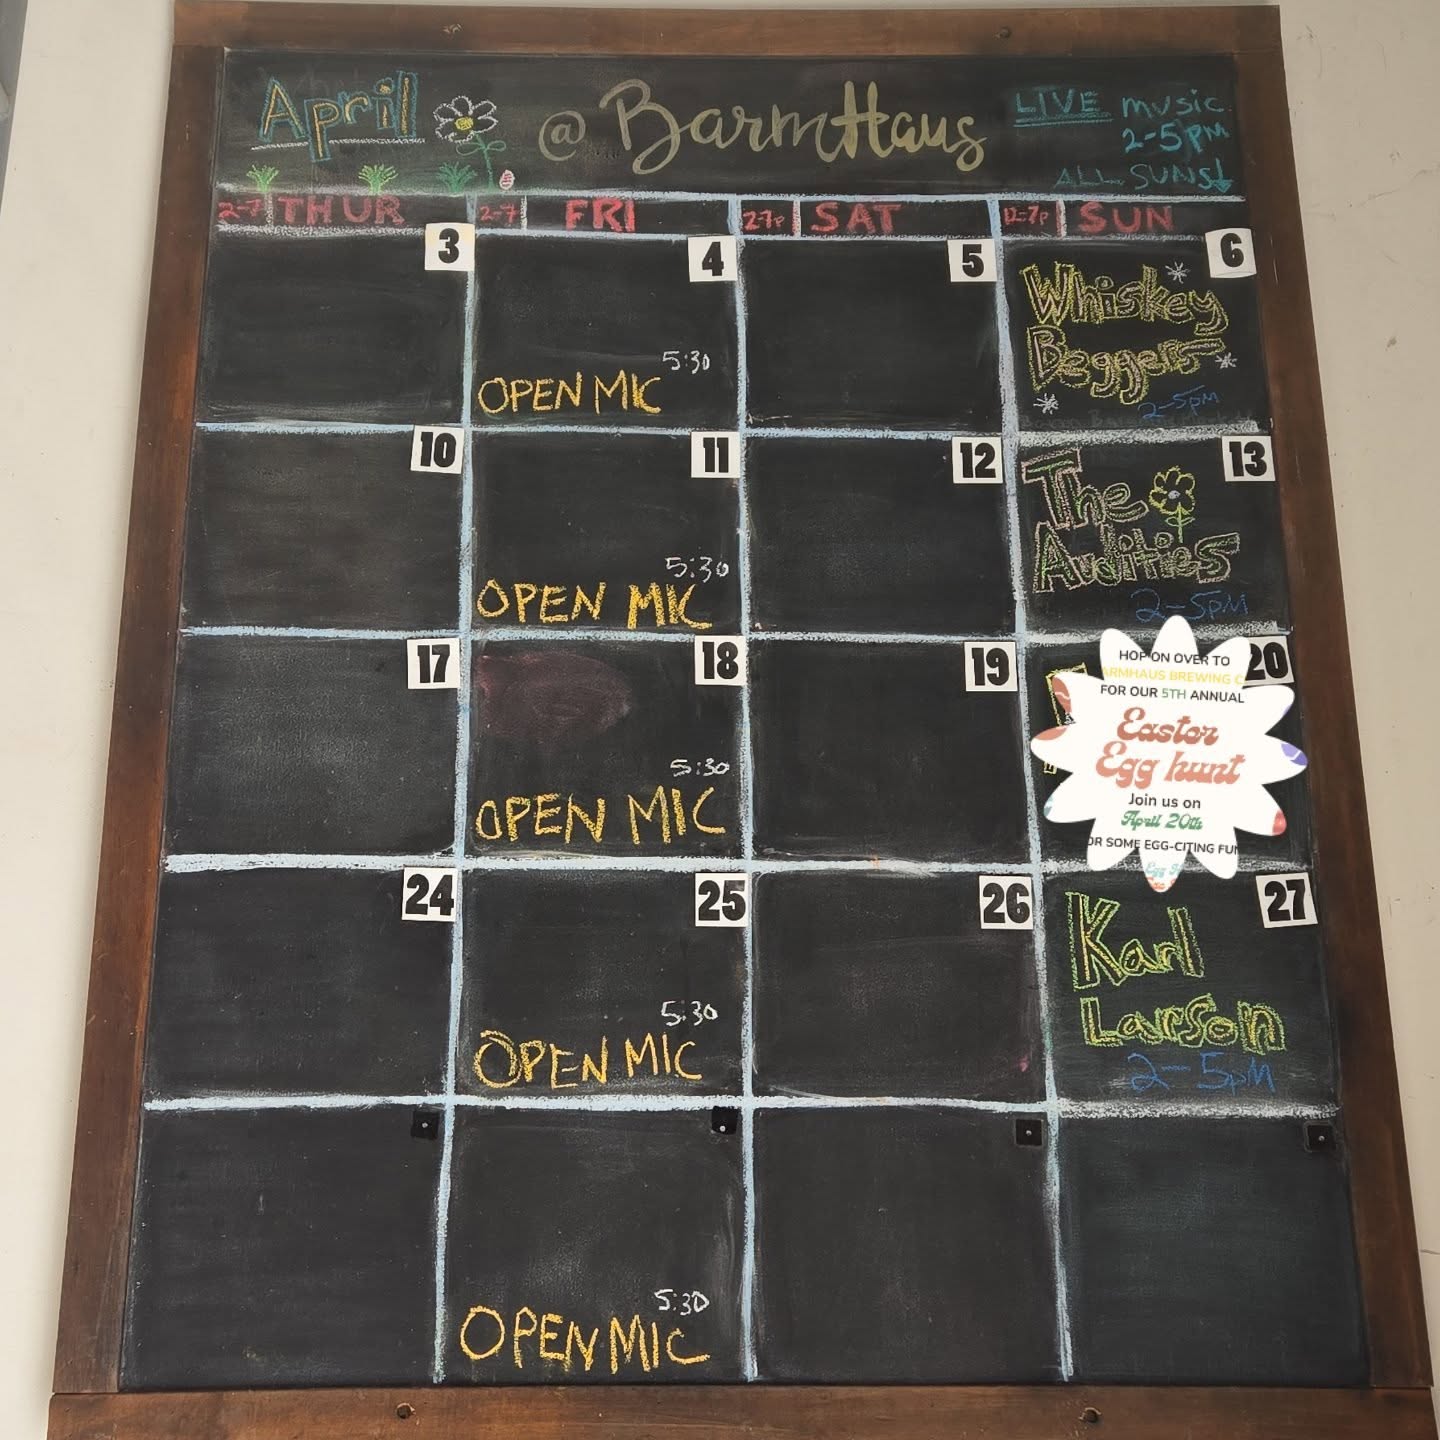 April @ BarmHaus
LIVE music
2-5pm
ALL SUNS↓
2-7 THUR 2-7 FRI 2-7p SAT 12-7p SUN
3 4 5 6
Whiskey
Beggers
2-5pm
5:30
OPEN MIC
10 11 12 13
The
Audities
2-5pm
5:30
OPEN MIC
17 18 19 20
HOP ON OVER TO
ARMHAUS BREWING C
FOR OUR 5TH ANNUAL
Easter
Egg hunt
Join us on
April 20th
OR SOME EGG-CITING FUN
Egg
5:30
OPEN MIC
24 25 26 27
Karl
Larson
2-5pm
5:30
OPEN MIC
5:30
OPEN MIC